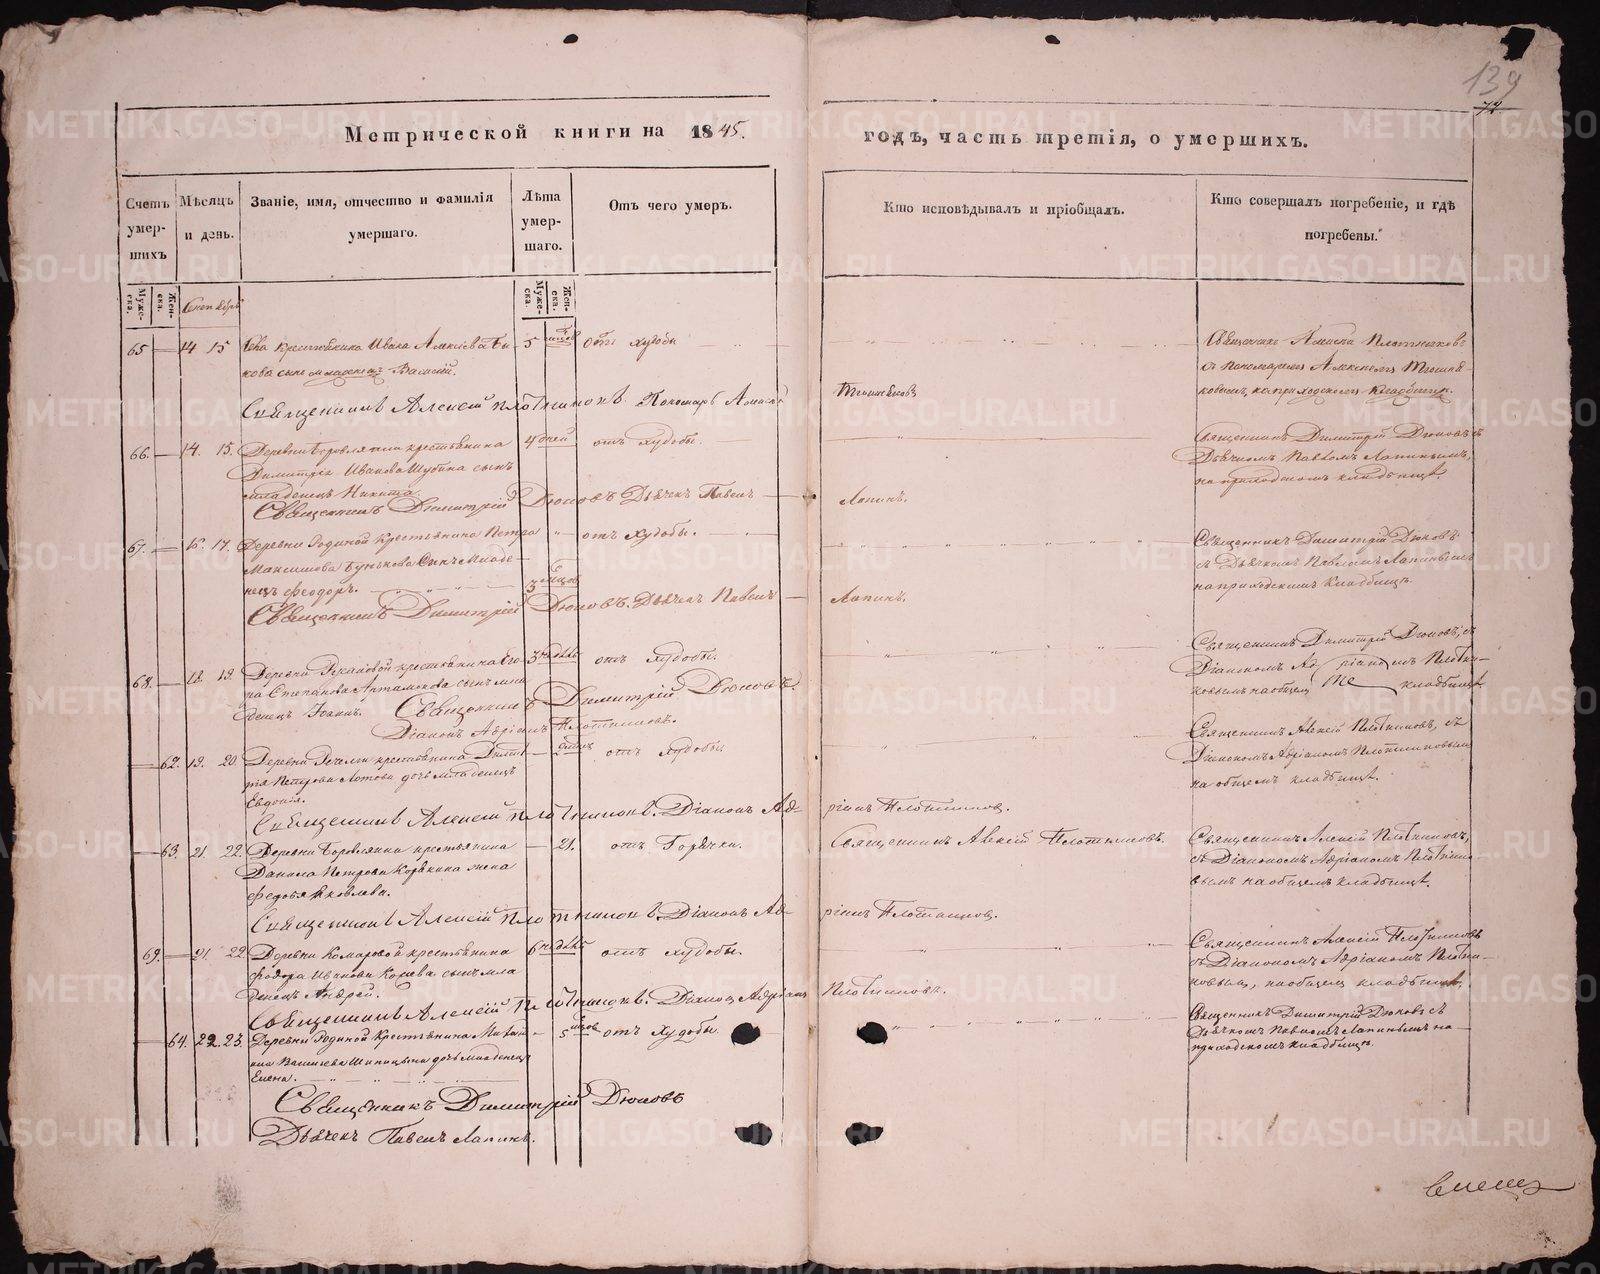 139
72
Метрической книги на 1845.
годъ, часть третія, о умершихъ.
Счетъ умер- шихъ
Мѣсяцъ и день.
Званіе, имя, отчество и фамилія умершаго.
Лѣта умер- шаго.
Отъ чего умеръ.
Кто исповѣдывалъ и пріобщалъ.
Кто совершалъ погребеніе, и гдѣ погребены.
Муже- ска.
Жен- ска.
Муже- ска.
Жен- ска.
65 — 14 15 крестьянина Ивана Алексѣева 5 отъ худобы Священникъ Алексѣй Плотниковъ
сынъ младенецъ Василій. съ пономаремъ Алексѣемъ
на приходскомъ кладбищѣ.
Священникъ Алексѣй Плотниковъ. Пономарь Алексѣй
66. — 14. 15. Деревни Боровлянки крестьянина 4 дней отъ худобы. Священникъ Димитрій Дюковъ съ
Димитрія Иванова Шубина сынъ Дьячкомъ Павломъ Лапинымъ,
младенецъ Никита. на приходскомъ кладбищѣ.
Священникъ Димитрій Дюковъ. Дьячекъ Павелъ Лапинъ.
67. — 16. 17. Деревни Родиной крестьянина Петра отъ худобы. Священникъ Димитрій Дюковъ
Максимова Бунькова сынъ младе- 3 мѣсяц съ Дьячкомъ Павломъ Лапинымъ
нецъ Феодоръ. на приходскомъ кладбищѣ.
Священникъ Димитрій Дюковъ. Дьячекъ Павелъ Лапинъ.
68. — 18. 19. Деревни крестьянина 3 недѣль отъ худобы. Священникъ Димитрій Дюковъ, съ
Степанова Артамонова сынъ мла Діакономъ Адріаномъ Плотни-
денецъ Іоаннъ. Священникъ Димитрій Дюковъ. ковымъ на общемъ кладбищѣ
Діаконъ Адріанъ Плотниковъ.
— 62. 19. 20. Деревни крестьянина Димит — отъ худобы Священникъ Алексѣй Плотниковъ, съ
рія Петрова дочь младенецъ Діакономъ Адріаномъ Плотниковымъ
Евдокія. на общемъ кладбищѣ.
Священникъ Алексѣй Плотниковъ. Діаконъ Ад- ріанъ Плотниковъ.
— 63. 21. 22. Деревни Боровлянки крестьянина — 21. отъ Горячки. Священникъ Алексій Плотниковъ. Священникъ Алексѣй Плотниковъ,
Данила Петрова Корякина жена съ Діакономъ Адріаномъ Плотнико
Ѳедосья Яковлева. вымъ на общемъ кладбищѣ.
Священникъ Алексѣй Плотниковъ. Діаконъ Ад- ріанъ Плотниковъ.
69. — 21. 22. Деревни Комаровой крестьянина 6 недѣль отъ худобы. Священникъ Алексѣй Плотниковъ
Федора Иванова сынъ мла съ Діакономъ Адріаномъ Плотни-
денецъ Андрей. ковымъ, на общемъ кладбищѣ.
Священникъ Алексѣй Плотниковъ. Діаконъ Адріанъ Плотниковъ.
— 64. 22. 23. Деревни Родиной крестьянина — 5 мѣсяц отъ худобы. Священникъ Димитрій Дюковъ съ
Васильева Шипицына дочь младенецъ Дьячкомъ Павломъ Лапинымъ на
Елена. приходскомъ кладбищѣ.
Священникъ Димитрій Дюковъ
Дьячекъ Павелъ Лапинъ.
METRIKI.GASO-URAL.RU